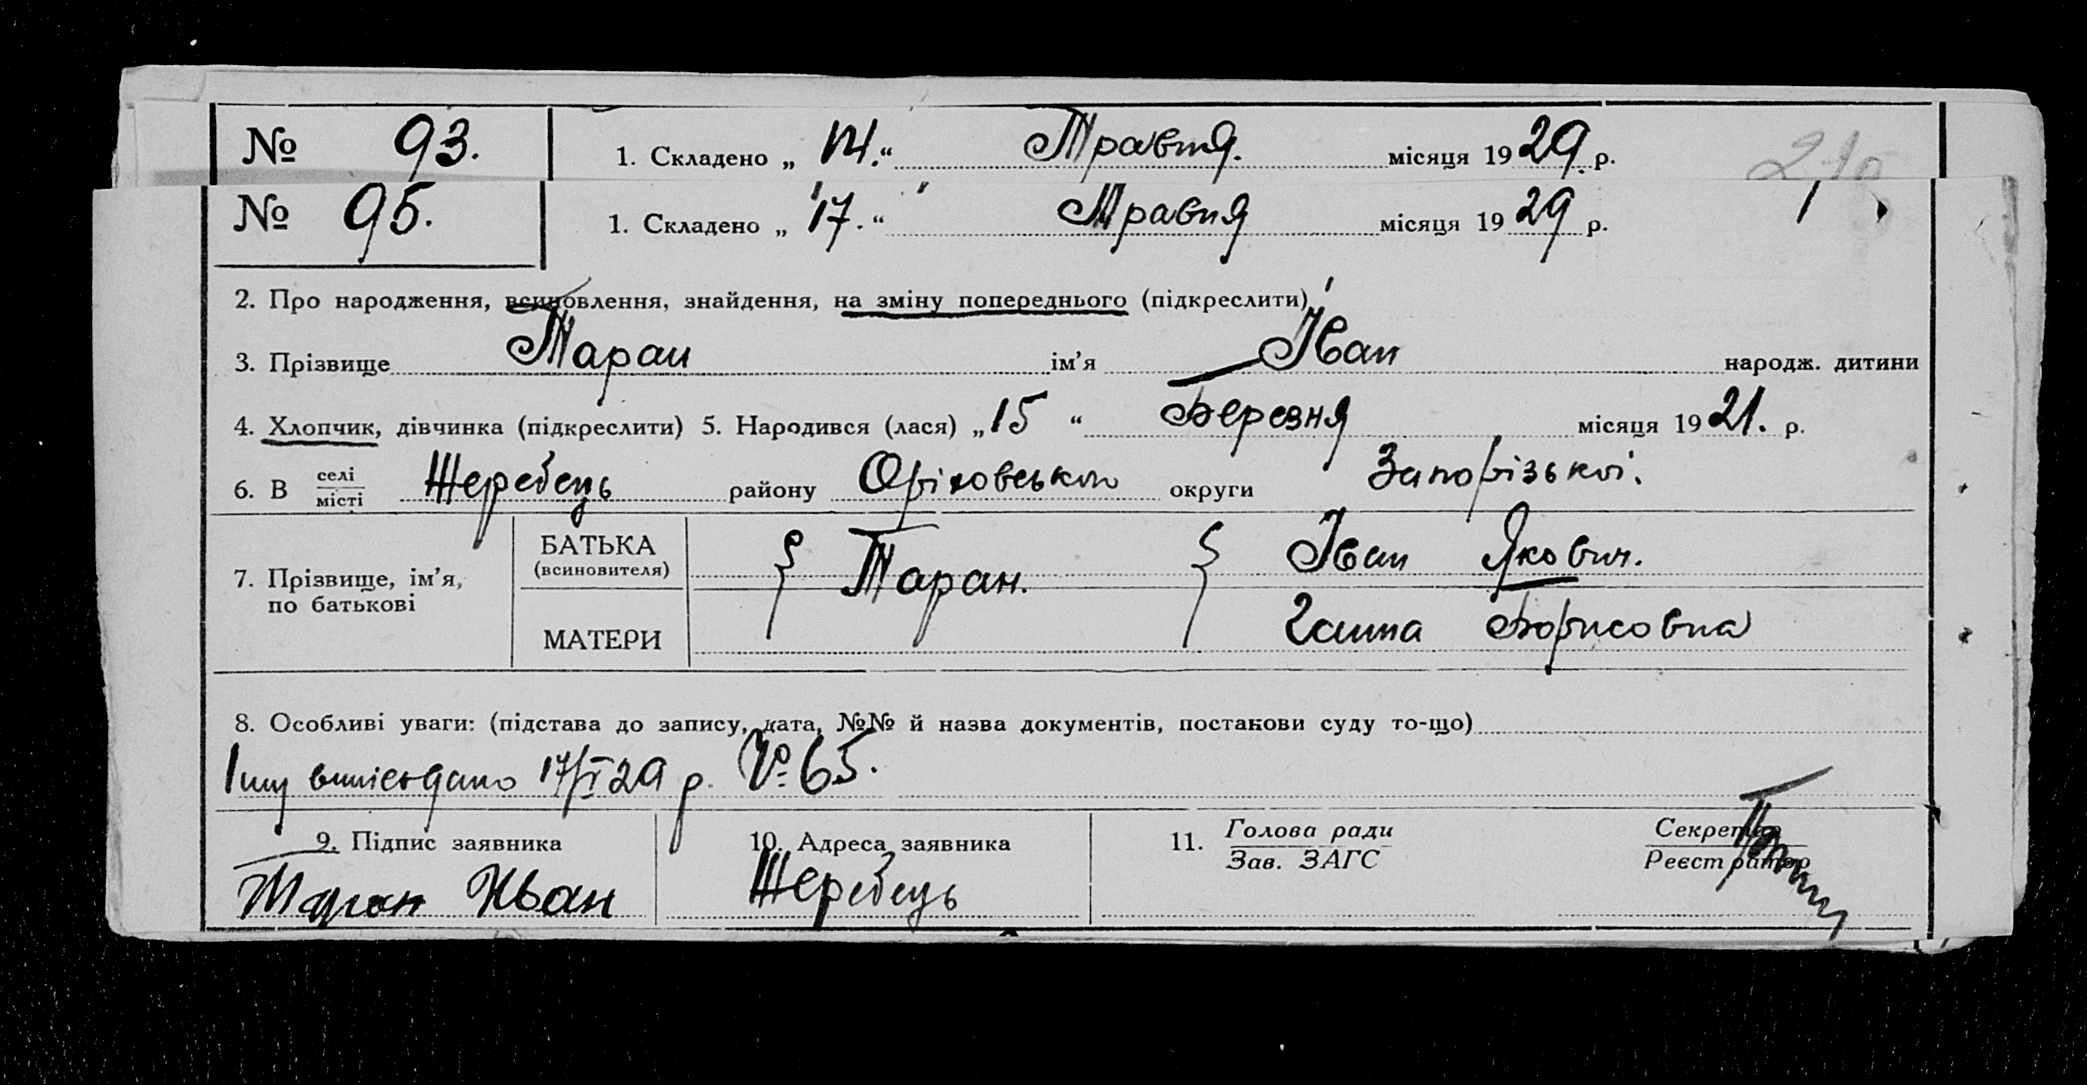 № 93. 1. Складено „ 14. “ Травня. місяця 1929 р.
№ 95. 1. Складено „ 17. “ Травня місяця 1929 р.
2. Про народження, всиновлення, знайдення, на зміну попереднього (підкреслити)
3. Прізвище Таран ім’я Іван народж. дитини
4. Хлопчик, дівчинка (підкреслити) 5. Народився (лася) „ 15 “ Березня місяця 1921. р.
6. В селі/місті Жеребець району Оріховського округи Запорізької.
7. Прізвище, ім’я, по батькові
БАТЬКА (всиновителя)
МАТЕРИ
Таран.
Іван Якович.
Ганна Борисовна
8. Особливі уваги: (підстава до запису, дата, №№ й назва документів, постанови суду то-що)
17/V 29 р. № 65.
9. Підпис заявника 10. Адреса заявника 11. Голова ради/Зав. ЗАГС Секретар/Реєстратор
Таран Иван Жеребець